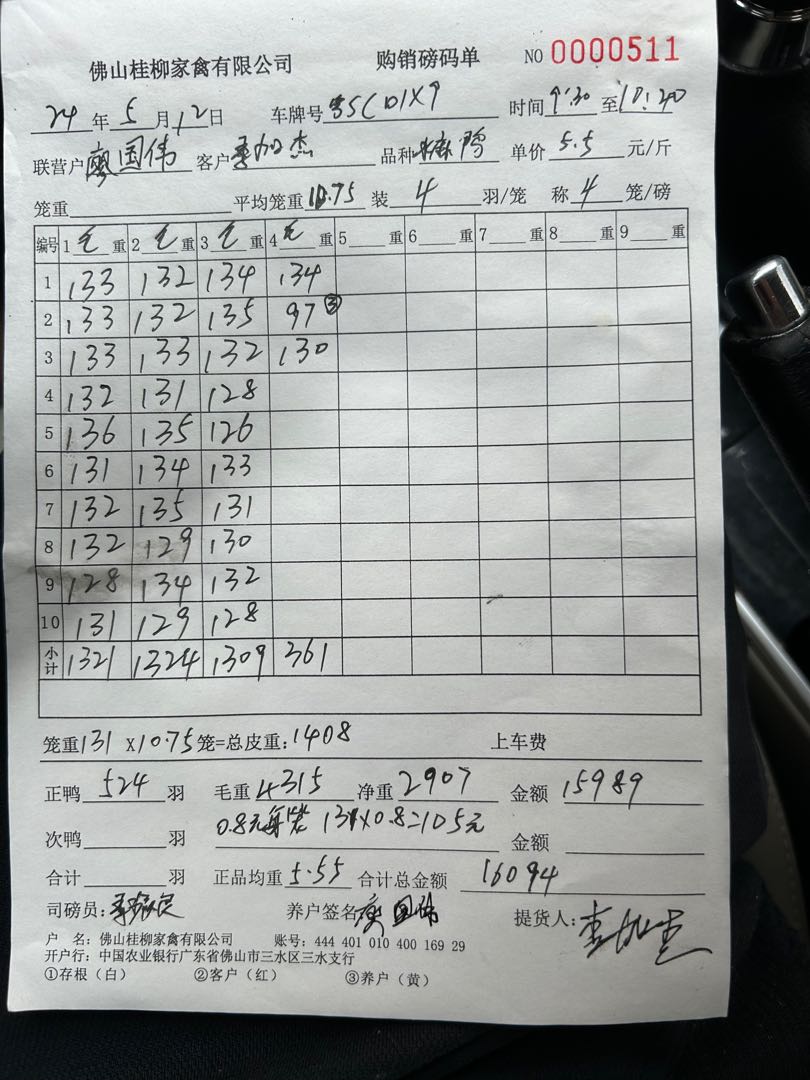 佛山桂柳家禽有限公司 购销磅码单 NO 0000511
24年5月12日 车牌号 时间9:30至10:40
联营户廖国伟 客户李加杰 品种 鸭 单价5.5元/斤
笼重 平均笼重10.75 装4羽/笼 称4笼/磅
编号 1毛重 2毛重 3毛重 4毛重 5重 6重 7重 8重 9重
1 133 132 134 134
2 133 132 135 97③
3 133 133 132 130
4 132 131 128
5 136 135 126
6 131 134 133
7 132 135 131
8 132 129 130
9 128 134 132
10 131 129 128
小计 1321 1324 1309 361
笼重131x10.75笼=总皮重:1408 上车费
正鸭524羽 毛重4315 净重2907 金额15989
次鸭羽 0.8元每 131x0.8=105元 金额
合计羽 正品均重5.55 合计总金额16094
司磅员: 养户签名廖国伟 提货人:李加杰
户 名:佛山桂柳家禽有限公司 账号:444 401 010 400 169 29
开户行:中国农业银行广东省佛山市三水区三水支行
①存根(白) ②客户(红) ③养户(黄)